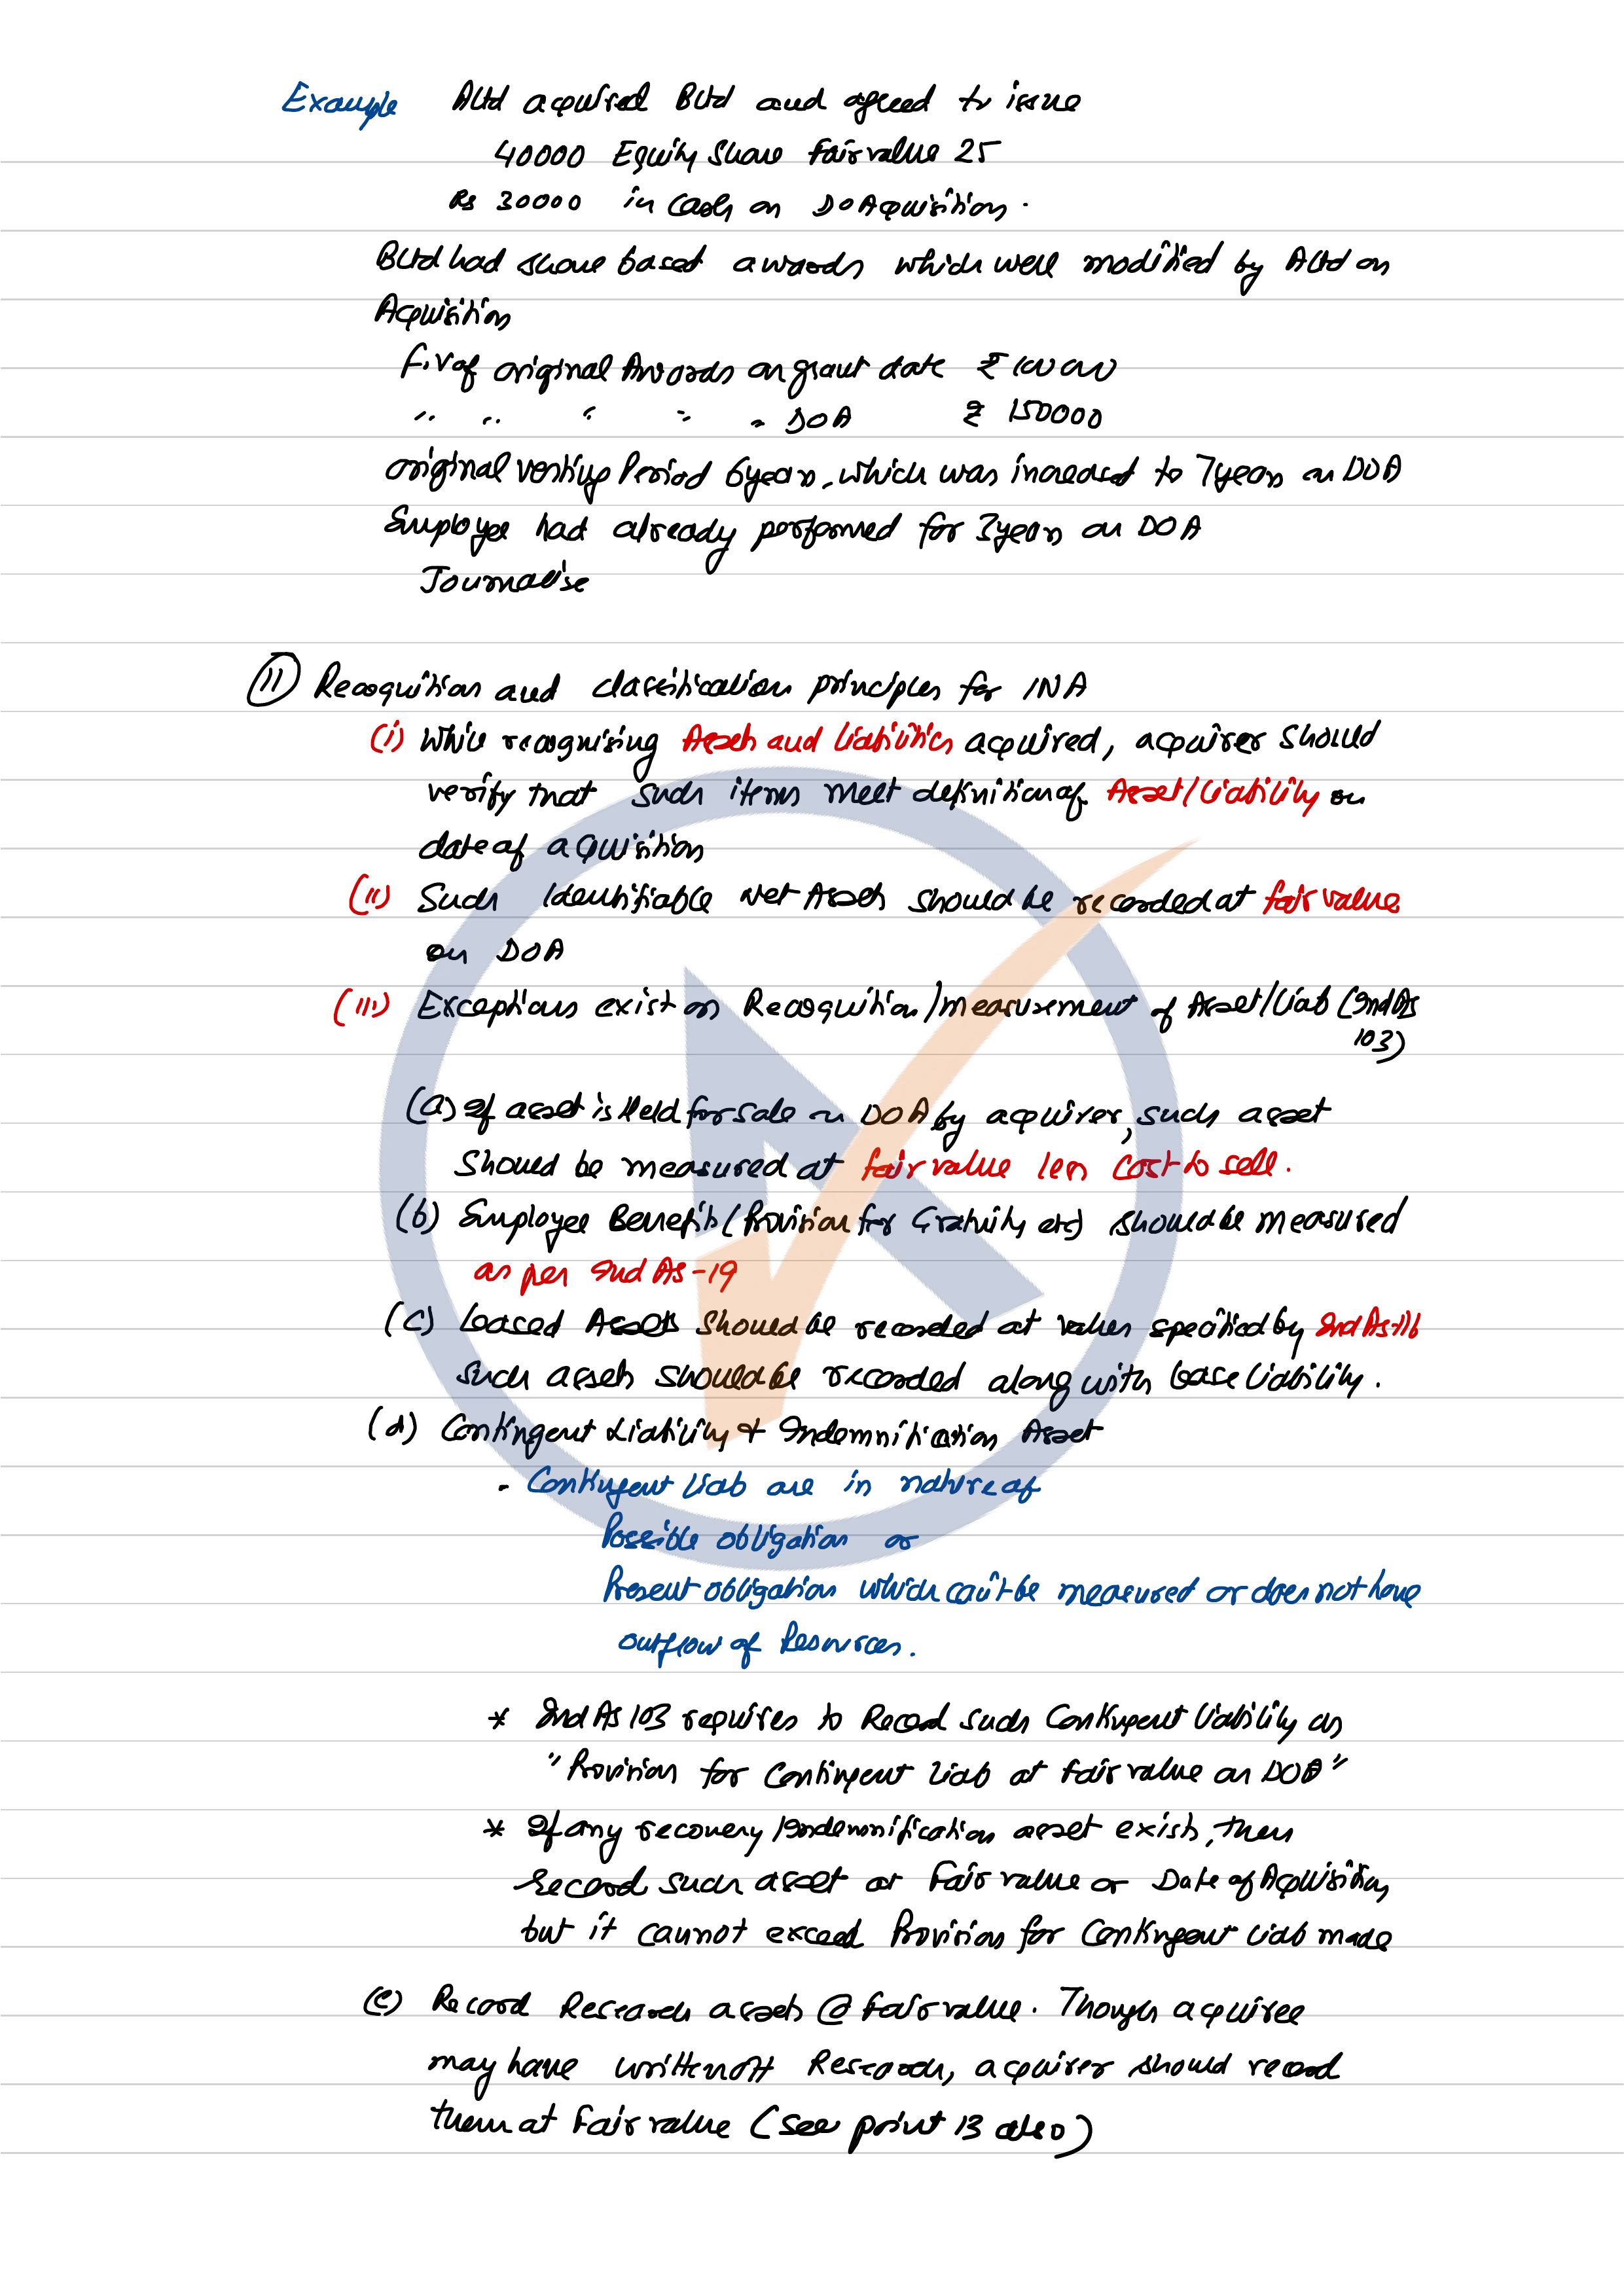 Example A Ltd acquired B Ltd and agreed to issue
40000 Equity Share fair value 25
Rs 30000 in Cash on DO Acquisition.
B Ltd had share based awards which were modified by A Ltd on
Acquisition
F.V of original Awards on grant date ₹ 100000
" " " " " DOA ₹ 150000
original vesting Period 6 years, which was increased to 7 years on DOA
Employee had already performed for 3 years on DOA
Journalise
(11) Recognition and classification principles for INA
(i) While recognising Assets and Liabilities acquired, acquirer should
verify that such items meet definition of Asset/Liability on
date of acquisition
(ii) Such Identifiable Net Assets should be recorded at fair value
on DOA
(iii) Exceptions exist on Recognition/measurement of Asset/Liab (Ind As
103)
(a) If asset is Held for Sale on DOA by acquirer, such asset
should be measured at fair value less cost to sell.
(b) Employee Benefits (Provision for Gratuity etc) should be measured
as per Ind As-19
(c) Leased Assets should be recorded at values specified by Ind As-116
such assets should be recorded along with lease liability.
(d) Contingent Liability & Indemnification Asset
- Contingent Liab are in nature of
Possible obligation or
Present obligation which can't be measured or does not have
outflow of Resources.
* Ind As 103 requires to Record such Contingent Liability as
"Provision for Contingent Liab at fair value on DOA"
* If any recovery/Indemnification asset exists, then
Record such asset at Fair value or Date of Acquisition,
but it cannot exceed Provision for Contingent Liab made
(e) Record Research assets @ fair value. Though acquiree
may have written off Research, acquirer should record
them at Fair value (see point 13 also)